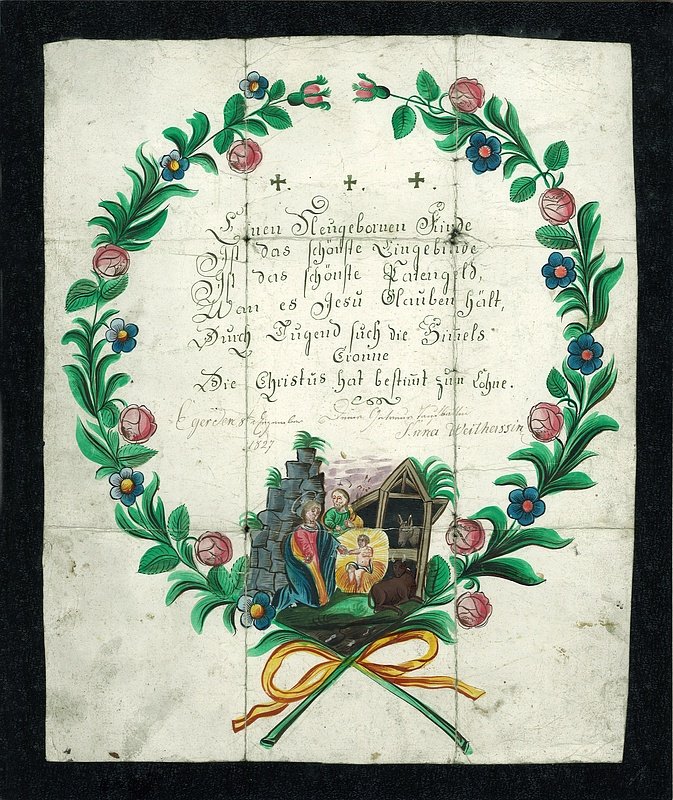 Einen Neugebornen Kinde
Ist das schönste Eingebinde
Ist das schönste Patengeld,
Wan es Jesu Glauben hält,
Durch Tugend such die Himels
Cronne
Die Christus hat bestimt zum Lohne.
Eger den 8t Dezember
1827
Anna Weilhassin